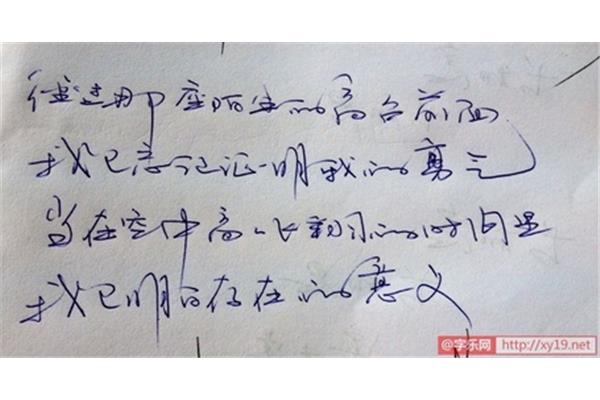 那座陌生的高台前面
我已忘记证明我的勇气
当在空中高的时间里
我已明白存在的意义
@字乐网 http://xy19.net